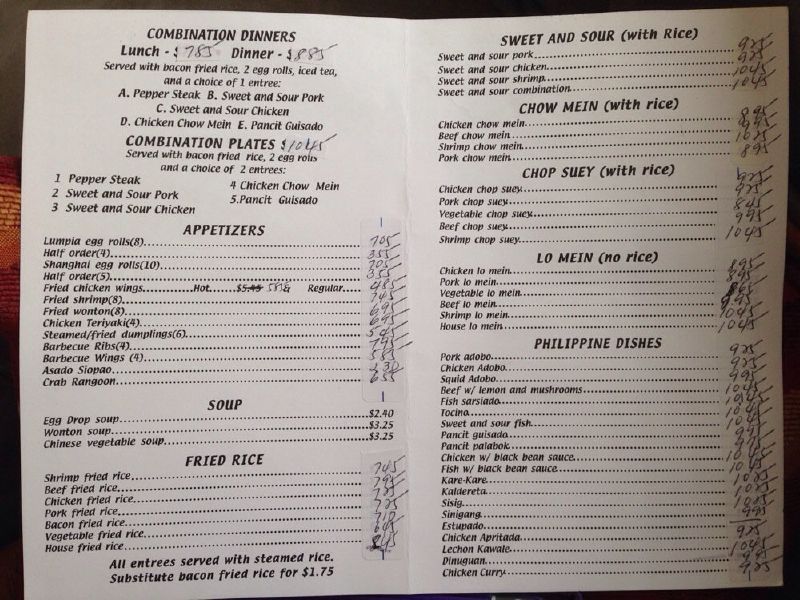 COMBINATION DINNERS
Lunch - $ 785 Dinner - $ 885
Served with bacon fried rice, 2 egg rolls, iced tea,
and a choice of 1 entree:
A. Pepper Steak B. Sweet and Sour Pork
C. Sweet and Sour Chicken
D. Chicken Chow Mein E. Pancit Guisado
COMBINATION PLATES $ 1045
Served with bacon fried rice, 2 egg rolls
and a choice of 2 entrees:
1 Pepper Steak
2 Sweet and Sour Pork
3 Sweet and Sour Chicken
4 Chicken Chow Mein
5.Pancit Guisado
APPETIZERS
Lumpia egg rolls(8) 705
Half order(4) 355
Shanghai egg rolls(10) 705
Half order(5) 355
Fried chicken wings Hot $5.45 Regular 485
Fried shrimp(8) 745
Fried wonton(8) 695
Chicken Teriyaki(4) 695
Steamed/fried dumplings(6) 545
Barbecue Ribs(4) 795
Barbecue Wings (4) 585
Asado Siopao
Crab Rangoon 655
SOUP
Egg Drop soup $2.40
Wonton soup $3.25
Chinese vegetable soup $3.25
FRIED RICE
Shrimp fried rice 745
Beef fried rice 795
Chicken fried rice 725
Pork fried rice 725
Bacon fried rice
Vegetable fried rice
House fried rice 845
All entrees served with steamed rice.
Substitute bacon fried rice for $1.75
SWEET AND SOUR (with Rice)
Sweet and sour pork 925
Sweet and sour chicken 925
Sweet and sour shrimp 1045
Sweet and sour combination 1045
CHOW MEIN (with rice)
Chicken chow mein 895
Beef chow mein 995
Shrimp chow mein 1025
Pork chow mein 895
CHOP SUEY (with rice)
Chicken chop suey 925
Pork chop suey 925
Vegetable chop suey 845
Beef chop suey 995
Shrimp chop suey 1045
LO MEIN (no rice)
Chicken lo mein 895
Pork lo mein 895
Vegetable lo mein
Beef lo mein 995
Shrimp lo mein 1045
House lo mein 1045
PHILIPPINE DISHES
Pork adobo 925
Chicken Adobo 925
Squid Adobo 995
Beef w/ lemon and mushrooms 1045
Fish sarsiado 1045
Tocino 1045
Sweet and sour fish 1045
Pancit guisado 995
Pancit palabok
Chicken w/ black bean sauce
Fish w/ black bean sauce
Kare-Kare 1025
Kaldereta 1025
Sisig 1025
Sinigang 995
Estupado
Chicken Apritada 925
Lechon Kawale 1045
Dinuguan 995
Chicken Curry 925